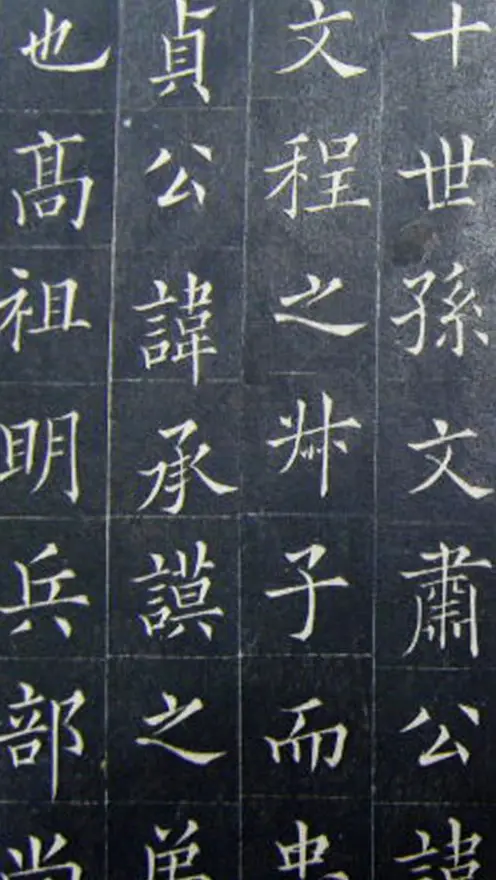 十世孫文肅公諱
文程之叔子而忠
貞公諱承謨之弟
也高祖明兵部尚